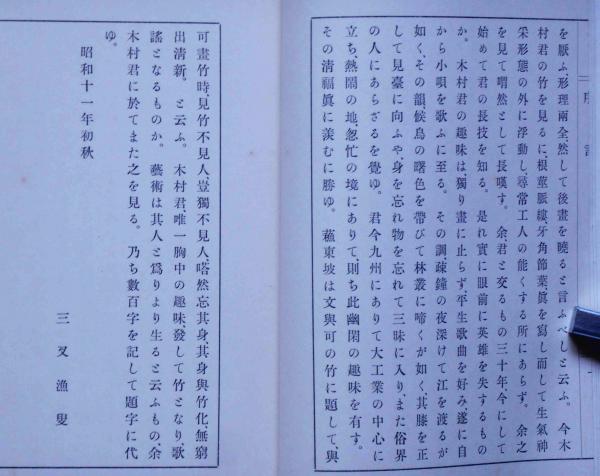 序言
を厭ふ、形理兩全、然して後畫を曉ると言ふべしと云ふ。今木
村君の竹を見るに、根莖脈縷、牙角節葉、眞を寫し而して生氣神
采形態の外に浮動し、尋常工人の能くする所にあらず。余之
を見て喟然として長嘆す。余君と交るもの三十年、今にして
始めて君の長技を知る。是れ實に眼前に英雄を失するもの
か。木村君の趣味は、獨り畫に止らず、平生歌曲を好み、遂に自
から小唄を歌ふに至る。その調疎鐘の夜深けて江を渡るが
如く、その韻、候鳥の曙色を帶びて林叢に啼くが如く、其膝を正
して見臺に向ふや、身を忘れ物を忘れて三昧に入り、また俗界
の人にあらざるを覺ゆ。君今九州にありて大工業の中心に
立ち、熱鬧の地、怱忙の境にありて、則ち此幽閑の趣味を有す。
その清福眞に羨むに勝ゆ。蘇東坡は文與可の竹に題して、與
可畫竹時、見竹不見人、豈獨不見人、嗒然忘其身、其身與竹化、無窮
出清新。と云ふ。木村君、唯一胸中の趣味、發して竹となり、歌
謠となるものか。藝術は其人と爲りより生ると云ふもの、余
木村君に於てまた之を見る。乃ち數百字を記して題字に代
ゆ。
昭和十一年初秋
三叉漁叟